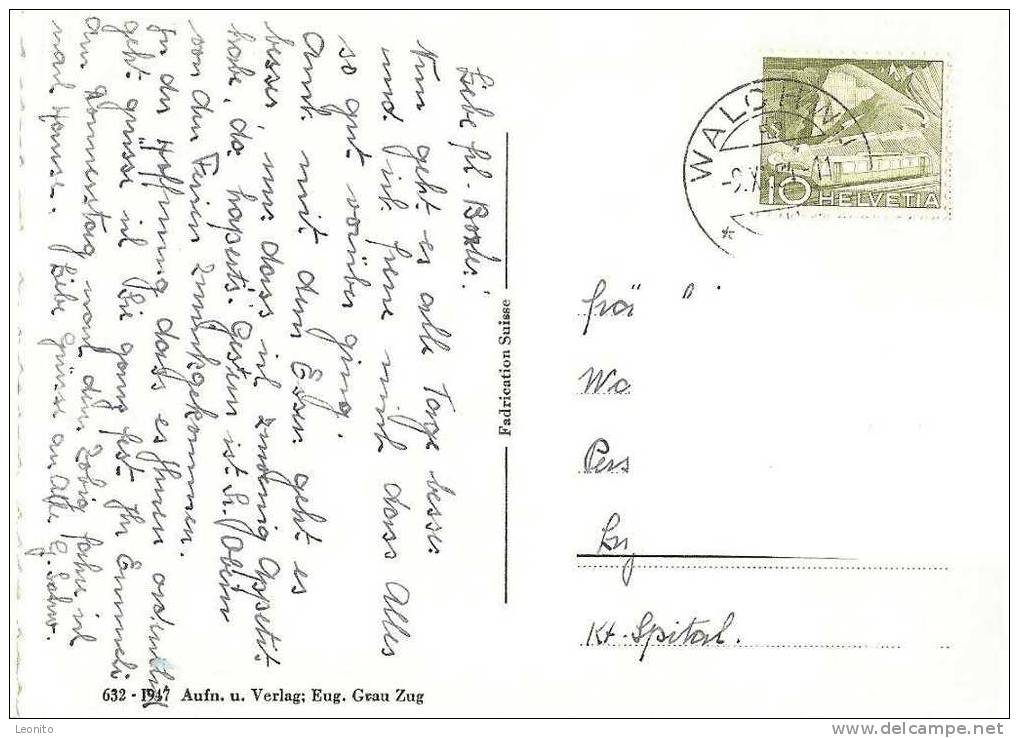 Liebe frl. Bosler!
Nun geht es alle Tage besser
und ich freue mich dass Alles
so gut vorüber ging.
Auch mit dem Essen geht es
besser, nur dass ich zwenig Appetit
habe, da haperts. Gestern ist Sr.
von den Ferien zurückgekommen.
In der Hoffnung dass es Ihnen ordentlich
geht grüsse ich Sie ganz fest Ihr Emmeli
am Donnerstag nach dem Zobig fahre ich
nach Hause. Liebe Grüsse an Alle
WALCH
-9.X
10 HELVETIA
Frä
Wa
Pers
Lu
Kt. Spital.
Fadrication Suisse
632 - 1947 Aufn. u. Verlag; Eug. Grau Zug
Leonito
delcampe.net